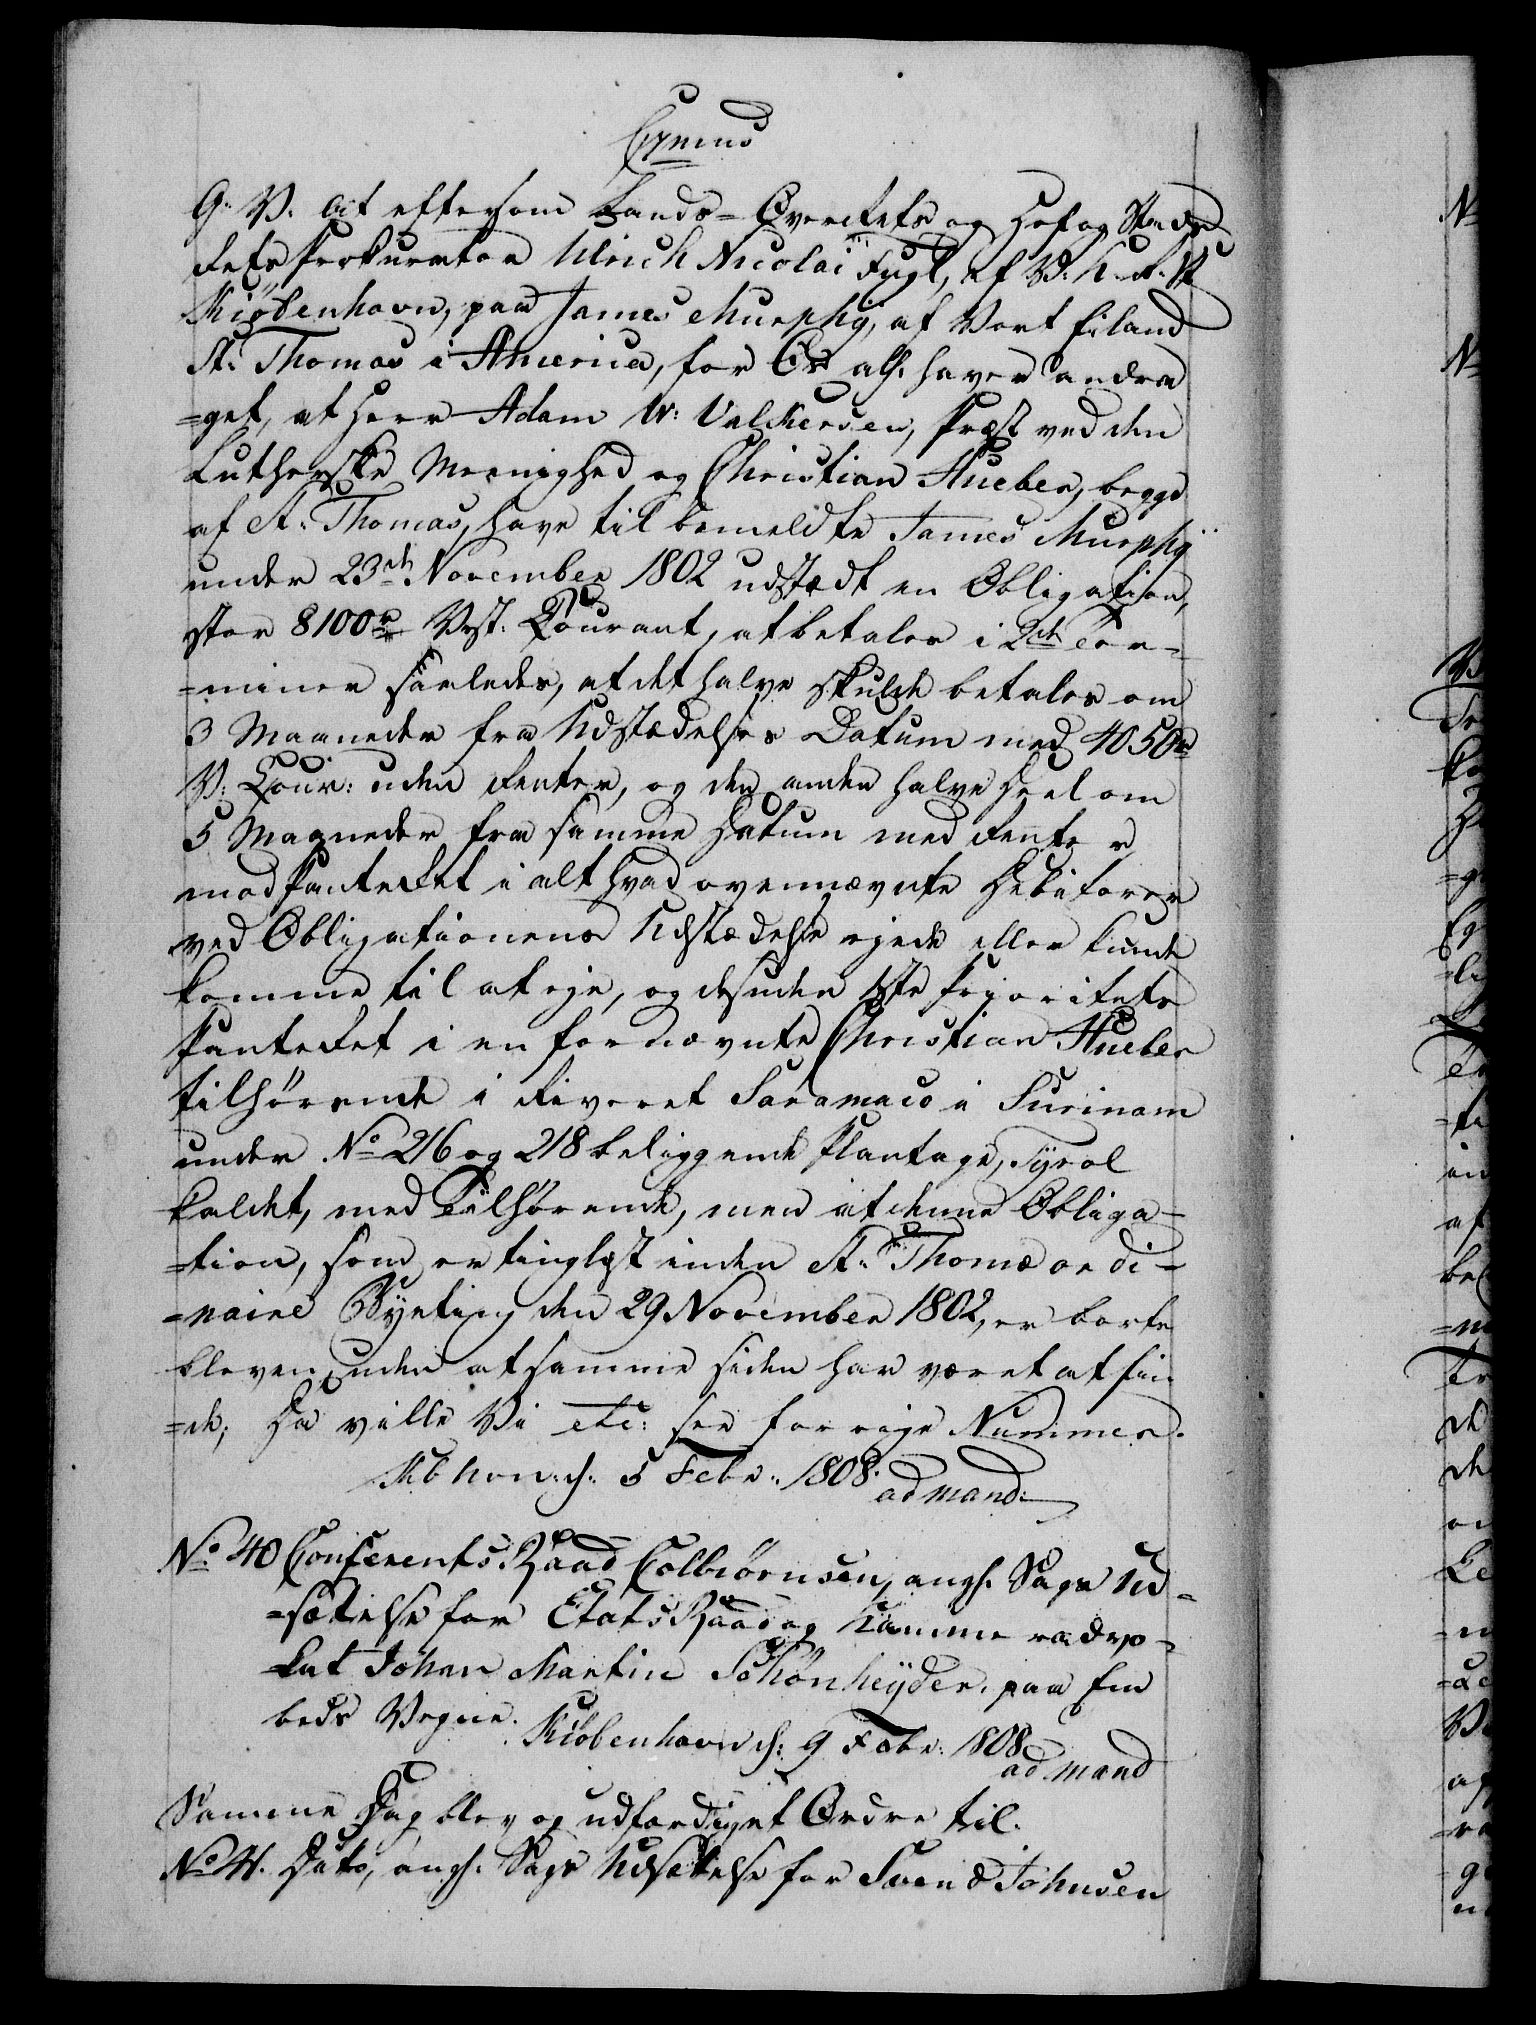 G: V: at eftersom Lands-Overrets og Hof og Stads
Rets Prokurator Ulrich Nicolai Fugl, af V: K: R: St:
Kiøbenhavn, paa James Murphy, af Vort Eiland
St: Thomas i America, for Os allh: haver andra
=get, at Herr Adam W: Valckersen, Præst ved den
Lutherske Meenighed og Christian Hueber, begge
af St: Thomas, have til bemeldte James Murphy
under 23de November 1802 udstædt en Obligation,
stor 8100rd Vest: Courant, at betales i 2de Ter-
=miner saaledes, at det halve skulde betales om
3 Maaneder fra Udstædelses Datum med 4050rd
V: Cour: uden Renter, og den anden halve Deel om
5 Maaneder fra samme Datum med Rente
mod Panteret i alt hvad ovennævnte Debitorer
ved Obligationens Udstædelse ejede eller kunde
komme til at eje, og desuden 1ste Prioritets
Panteret i en fornævnte Christian Hueber
tilhørende i Riveret Saramaco i Surinam
under No 216 og 218 beliggende Plantage, Tyrol
kaldet, med Tilhørende, men at denne Obliga-
=tion, som er tinglæst inden St: Thomæ ordi-
=naire Byeting den 29 November 1802, er borte
bleven uden at samme siden har været at fin
=de; Da ville Vi etc: see forrige Nummer.
Kbhavn: d: 5 Febr: 1808.
ad mand:
No 40 Conferents Raad Colbiørnsen, angl: Sags Ud-
=sættelse for Etats Raad og Kammeradvo-
=kat Johan Martin Schønheyder, paa Em
beds Vegne.
Kiøbenhavn d: 9 Febr: 1808.
ad mand
Samme Dag blev og udfærdiget Ordre til.
No 41. Dito, angl: Sags Udsættelse for Svend Johnsen